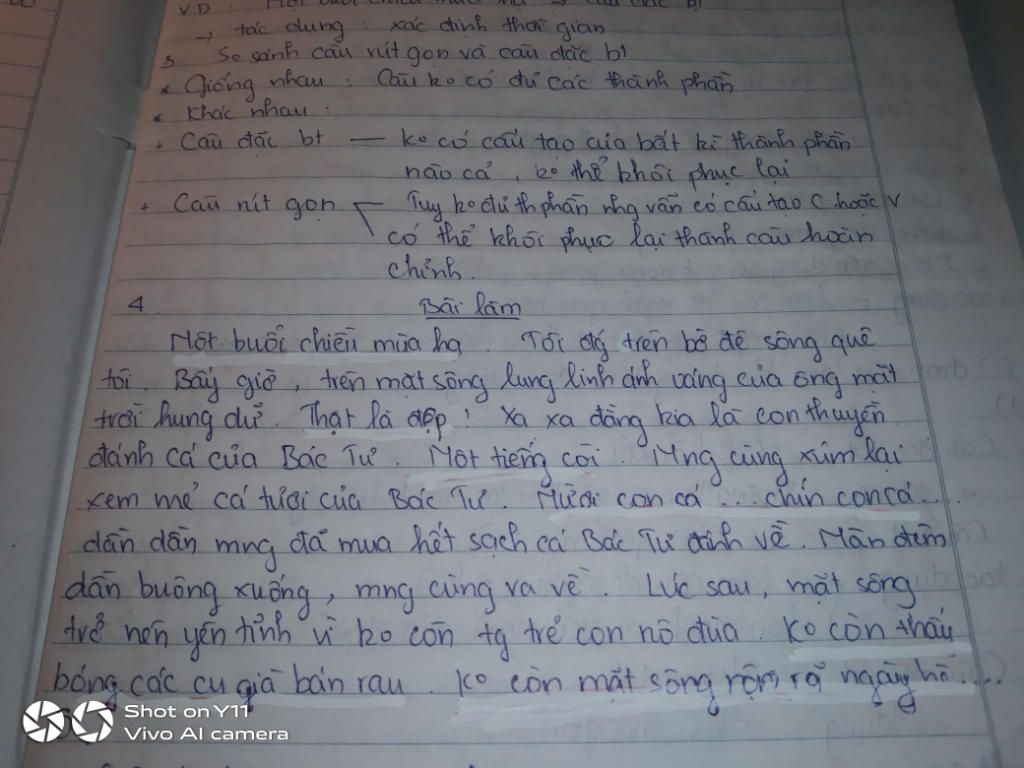 VD : Một buổi chiều mùa hạ → câu đặc bt
→ tác dụng : xác định thời gian
3 So sánh câu rút gọn và câu đặc bt
* Giống nhau : Câu ko có đủ các thành phần
* Khác nhau :
+ Câu đặc bt — ko có cấu tạo của bất kì thành phần
nào cả , ko thể khôi phục lại
+ Câu rút gọn Tuy ko đủ th phần nhg vẫn có cấu tạo C hoặc V
có thể khôi phục lại thành câu hoàn
chỉnh.
4 Bài làm
Một buổi chiều mùa hạ . Tôi đg trên bờ đê sông quê
tôi . Bấy giờ , trên mặt sông lung linh ánh vàng của ông mặt
trời hung dữ . Thật là đẹp ! Xa xa đằng kia là con thuyền
đánh cá của Bác Tư . Một tiếng còi . Mng cùng xúm lại
xem mẻ cá tươi của Bác Tư . Mười con cá ... chín con cá ....
dần dần mng đã mua hết sạch cá Bác Tư đánh về . Màn đêm
dần buông xuống , mng cùng ra về . Lúc sau , mặt sông
trở nên yên tĩnh vì ko còn tg trẻ con nô đùa . Ko còn thấy
bóng các cụ già bán rau . Ko còn mặt sông rộm rã ngày hè ....
Shot on Y11
Vivo AI camera